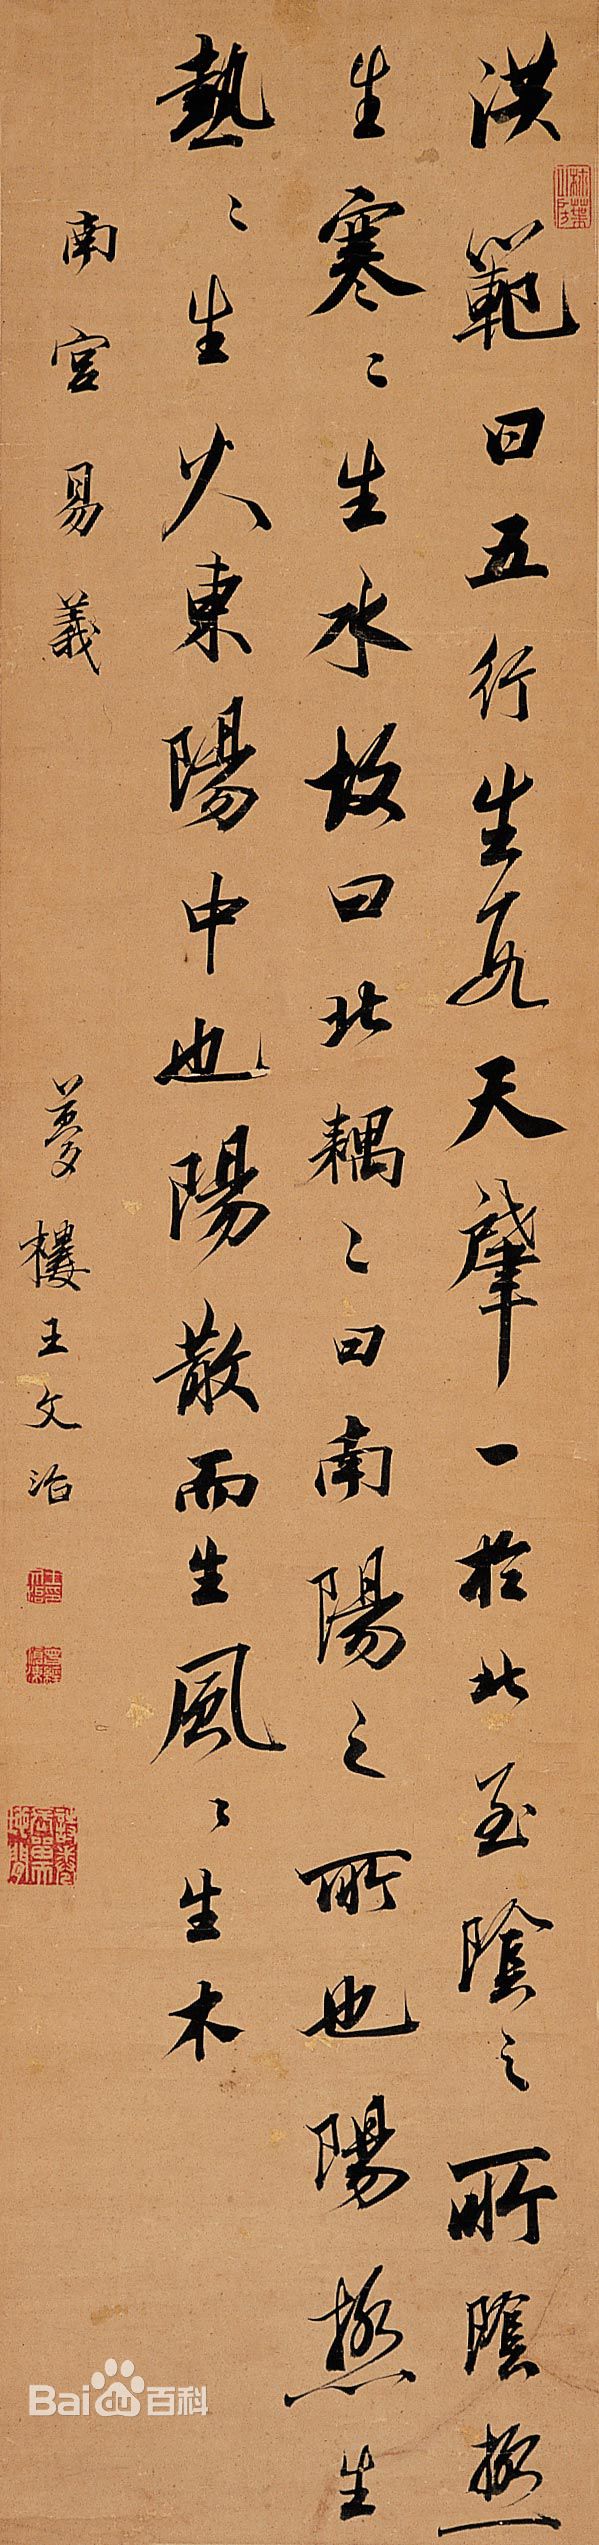 洪範曰五行生數天肇一於北至陰之所陰極
生寒〻生水故曰北耦〻曰南陽之所也陽極生
熱〻生火東陽中也陽散而生風〻生木
南宮易義
夢樓王文治
柿葉山房
Bai百科